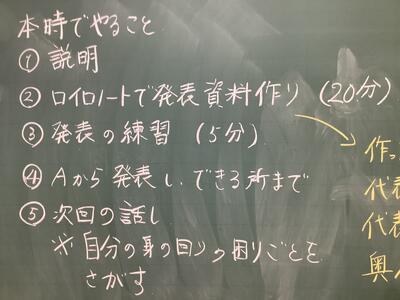 本時でやること
① 説明
② ロイロノートで発表資料作り (20分)
③ 発表の練習 (5分)
④ Aから発表し、できる所まで
⑤ 次回の話し
※自分の身の回りの困りごとを
さがす
作っ
代表
代表
奥